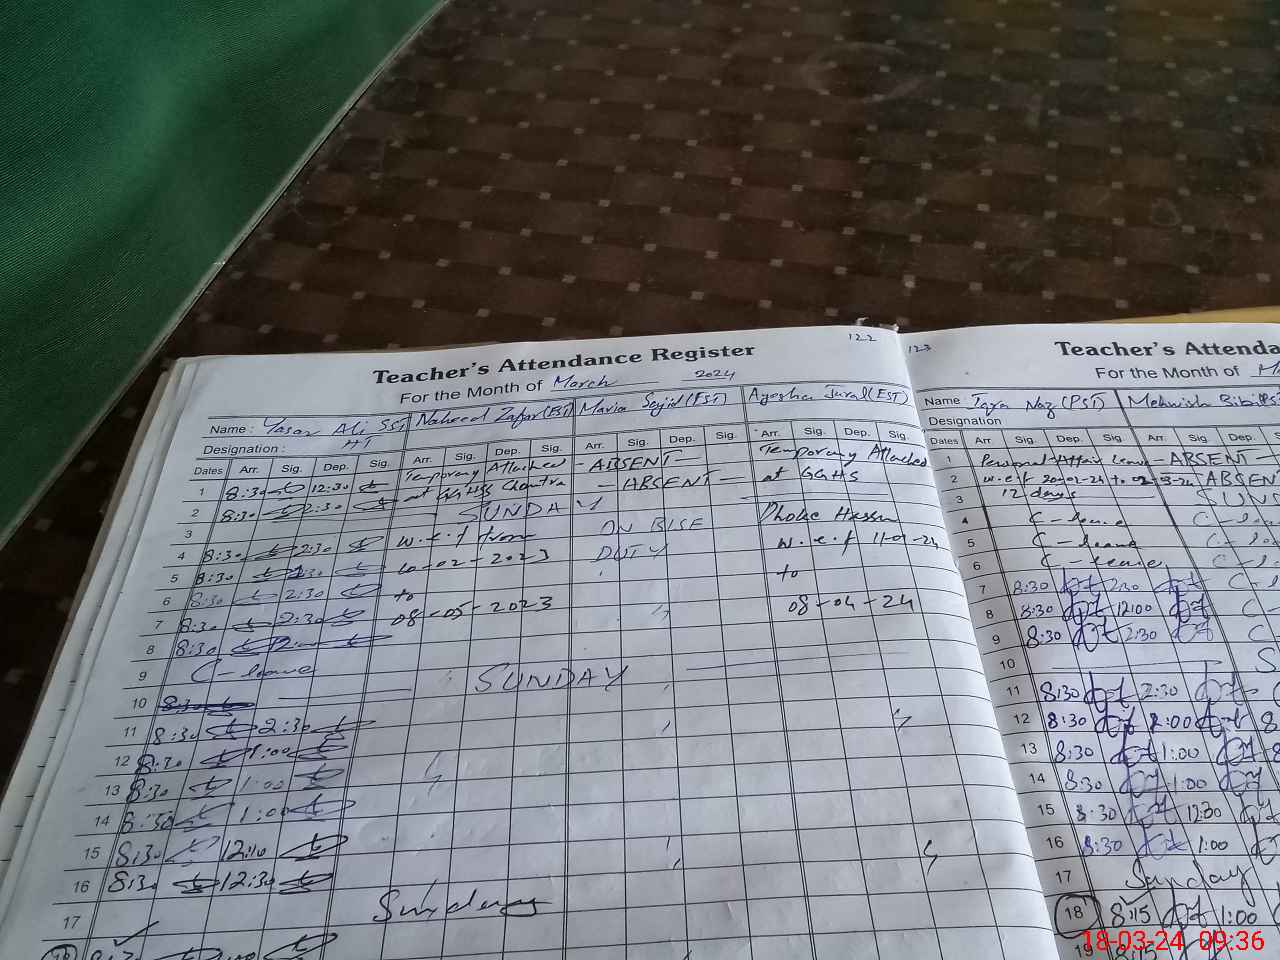 122
Teacher's Attendance Register
For the Month of March 2024
Name : Yasar Ali SST Naheed Zafar (PST) Maria Sajid (EST) Ayesha (EST)
HT
Designation :
Dates Arr. Sig. Dep. Sig. Arr. Sig. Dep. Sig. Arr. Sig. Dep. Sig. Arr. Sig. Dep. Sig.
1 8:30 12:30 Temporary Attached - ABSENT - Temporary Attached
2 8:30 2:30 at GGHSS - ABSENT - at GGHS
3 SUNDAY
4 8:30 2:30 w.e.f from ON BISE Dhoke
5 8:30 2:30 10-02-2023 DUTY w.e.f 11-01-24
6 8:30 2:30 to to
7 8:30 2:30 08-05-2023 08-04-24
8 8:30 12:00
9 C-leave
10 8:30 SUNDAY
11 8:30 2:30
12 8:30 1:00
13 8:30 1:00
14 8:30 1:00
15 8:30 12:10
16 8:30 12:30
17 Sunday
18
123
Teacher's Attenda
For the Month of Ma
Name : Naz (PST) Mehwish Bibi
Designation
Dates Arr. Sig. Dep. Sig. Arr. Sig. Dep.
1 Personal Affair leave - ABSENT -
2 w.e.f 20-02-24 to 02-3-24 ABSENT
3 12 days SUN
4 C-leave
5 C-leave
6 C-leave
7 8:30 2:30
8 8:30 12:00
9 8:30 2:30
10 S
11 8:30 2:30
12 8:30 2:00 8
13 8:30 1:00
14 8:30 1:00
15 8:30 12:30
16 8:30 1:00
17 Sunday
18 8:15 1:00
19 8:15
18-03-24 09:36